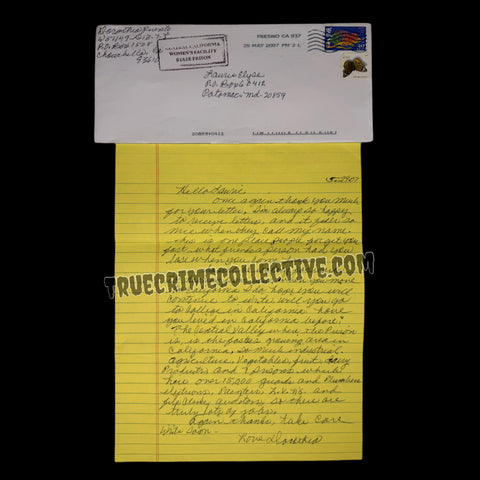 Dorothea Puente
W51149
P.O. Box 1508
Chowchilla, Ca
CENTRAL CALIFORNIA
WOMEN'S FACILITY
STATE PRISON
FRESNO CA 937
29 MAY 2007 PM 2 L
Laurie Elyse
P.O. Box 60412
Potomac, Md-20859
20859+0412
Hello Laurie,
Once again thank you much
for your letter. I'm always so happy
to receive letters, and it feels so
nice when they call my name.
This is one place people forget you
fast, what friends a person had you
lose when you
TRUECRIMECOLLECTIVE.COM
you move
to California I do hope you will
continue to write, will you go
to college in California have
you lived in California before?
The Central Valley where the Prison
is, is the fastest growing area in
California, So much industrial,
agriculture, Vegetables, fruit, dairy
Products and Prisons which
have over 15,000 guards and Plumbers
Painters, L.V.N.s and
file Clerks, so there are
truly lots of jobs.
Again thanks, take Care
Write Soon-
Love Dorothea